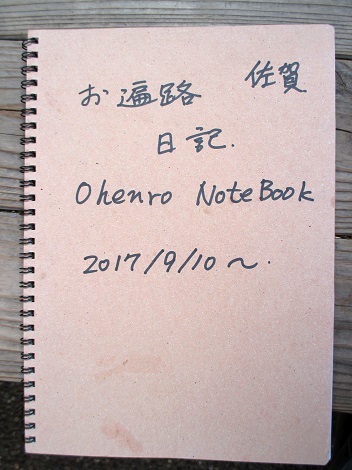 お遍路 佐賀
日記.
Ohenro NoteBook
2017/9/10~.